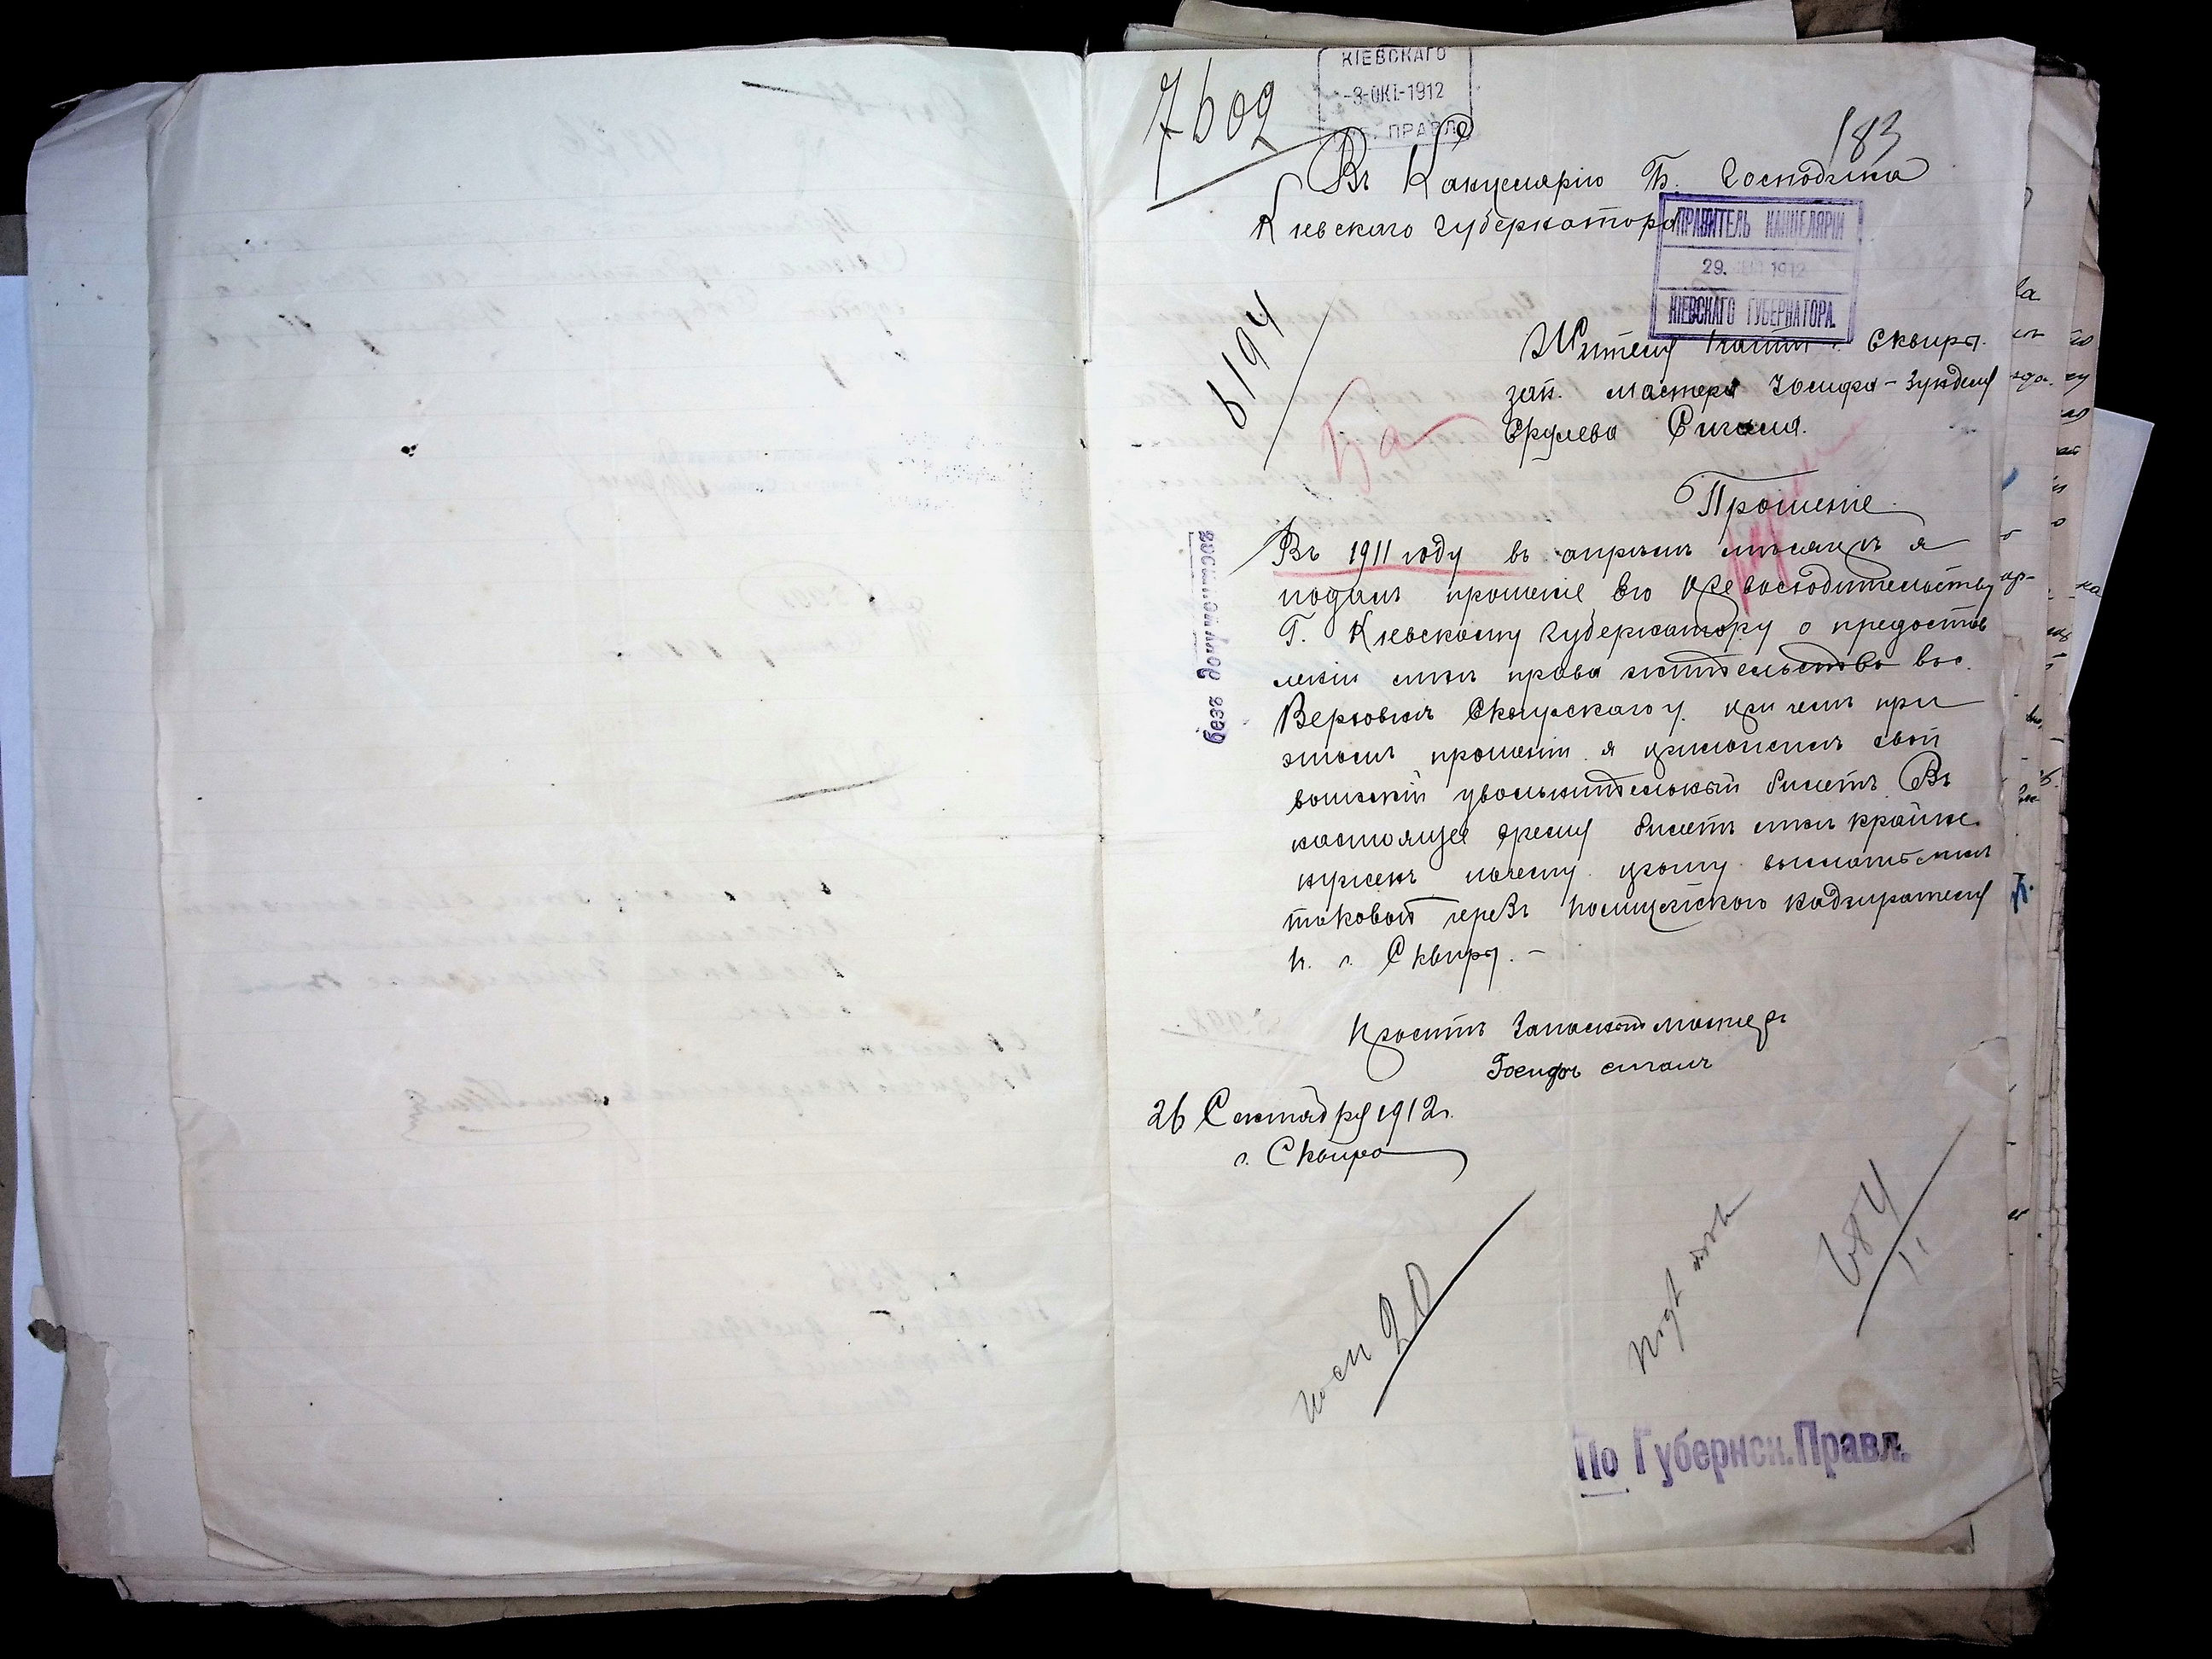 7602
КІЕВСКАГО
-3-ОКТ-1912
ПРАВЛ
183
Въ Канцелярію Г. Господина
Кіевскаго Губернатора
ПРАВИТЕЛЬ КАНЦЕЛЯРІИ
29. 1912
КІЕВСКАГО ГУБЕРНАТОРА.
6194
Жителя г. Сквиры
зап. мастера Іосифа-Зунделя
Срулева Сигала.
Прошеніе
Въ 1911 году въ апрѣлѣ мѣсяцѣ я
подалъ прошеніе Его Превосходительству
Г. Кіевскому Губернатору о предостав
леніи мнѣ права жительства въ с.
Верховнѣ Сквирскаго у. при чемъ при
этомъ прошеніи я приложилъ свой
воинскій увольнительный билетъ. Въ
настоящее время билетъ мнѣ крайне
нуженъ почему прошу выслать мнѣ
таковой черезъ Полицейскаго Надзирателя
г. Сквиры. -
Проситъ Запасный мастеръ
Іосифъ сигалъ
26 Сентября 1912 г.
г. Сквира
без гербоваго сбора
20
684
11
По Губернск. Правл.